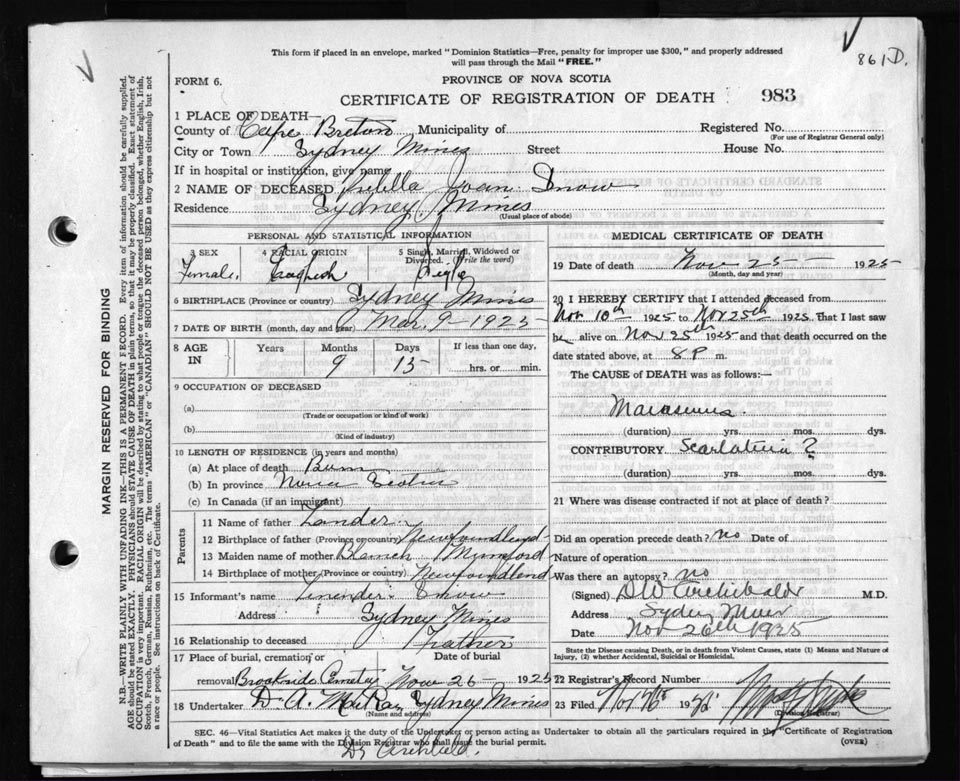 861 D.
This form if placed in an envelope, marked "Dominion Statistics—Free, penalty for improper use $300," and properly addressed
will pass through the Mail "FREE."
FORM 6.
PROVINCE OF NOVA SCOTIA
CERTIFICATE OF REGISTRATION OF DEATH 983
1 PLACE OF DEATH—
County of Cape Breton Municipality of Registered No.
(For use of Registrar General only)
City or Town Sydney Mines Street House No.
If in hospital or institution, give name
2 NAME OF DECEASED Joan Snow
Residence Sydney Mines
(Usual place of abode)
PERSONAL AND STATISTICAL INFORMATION
3 SEX 4 RACIAL ORIGIN 5 Single, Married, Widowed or
Divorced. (Write the word)
Female, English Single
6 BIRTHPLACE (Province or country) Sydney Mines
7 DATE OF BIRTH (month, day and year) Mar, 9— 1925
8 AGE IN Years Months Days If less than one day,
9 15 hrs. or min.
9 OCCUPATION OF DECEASED
(a)
(Trade or occupation or kind of work)
(b)
(Kind of industry)
10 LENGTH OF RESIDENCE (in years and months)
(a) At place of death
(b) In province Nova Scotia
(c) In Canada (if an immigrant)
Parents
11 Name of father Lander.
12 Birthplace of father (Province or country) Newfoundland
13 Maiden name of mother Blanch Mumford
14 Birthplace of mother (Province or country) Newfoundland
15 Informant's name Snow
Address Sydney Mines
16 Relationship to deceased Father
17 Place of burial, cremation or Date of burial
removal Brookside Cemetery Nov 26— 1925
18 Undertaker D. A. Sydney Mines
(Name and address)
MEDICAL CERTIFICATE OF DEATH
19 Date of death Nov 25— 1925
(Month, day and year)
20 I HEREBY CERTIFY that I attended deceased from
Nov 10th 1925 to Nov 25th 1925. That I last saw
h alive on Nov 25th 1925 and that death occurred on the
date stated above, at 8 P m.
The CAUSE of DEATH was as follows:—
Marasmus
(duration) yrs. mos. dys.
CONTRIBUTORY Scarlatina ?
(duration) yrs. mos. dys.
21 Where was disease contracted if not at place of death?
Did an operation precede death? no Date of
Nature of operation
Was there an autopsy? no
(Signed) DW Archibald M.D.
Address Sydney Mines
Date Nov 26th 1925
State the Disease causing Death, or in death from Violent Causes, state (1) Means and Nature of
Injury, (2) whether Accidental, Suicidal or Homicidal.
22 Registrar's Record Number
23 Filed Nov 19
(Division Registrar)
SEC. 46—Vital Statistics Act makes it the duty of the Undertaker or person acting as Undertaker to obtain all the particulars required in the "Certificate of Registration
of Death" and to file the same with the Division Registrar who shall issue the burial permit. (OVER)
Dr Archibald.
MARGIN RESERVED FOR BINDING
N.B.—WRITE PLAINLY WITH UNFADING INK—THIS IS A PERMANENT RECORD. Every item of information should be carefully supplied.
AGE should be stated EXACTLY. PHYSICIANS should STATE CAUSE OF DEATH in plain terms, so that it may be properly classified. Exact statement of
OCCUPATION is very important. RACIAL ORIGIN will be described by stating to what people or tongue the deceased person belonged, whether English, Irish,
Scotch, French, German, Russian, Ruthenian, etc. The terms "AMERICAN" or "CANADIAN" SHOULD NOT BE USED as they express citizenship but not
a race or people. See instructions on back of Certificate.